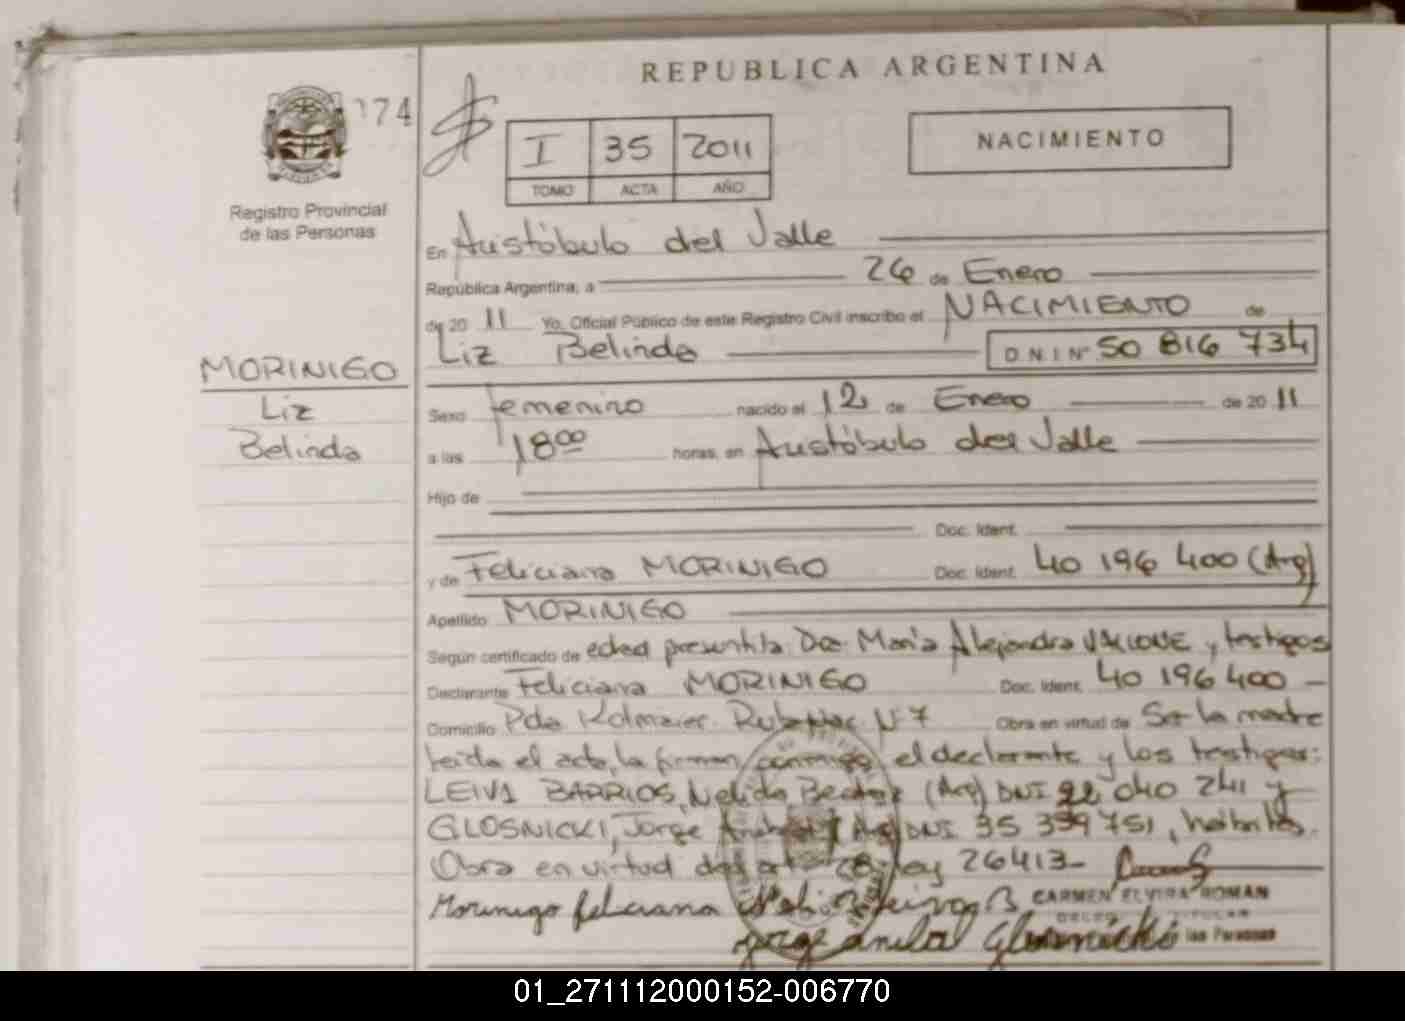 REPUBLICA ARGENTINA
374
I 35 2011
TOMO ACTA AÑO
NACIMIENTO
Registro Provincial
de las Personas
En Aristóbulo del Valle
República Argentina, a 26 de Enero
de 20 11 Yo, Oficial Público de este Registro Civil inscribo el NACIMIENTO de
Liz Belinda D.N.I Nº 50 816 734
MORINIGO
Liz
Belinda
Sexo femenino nacido el 12 de Enero de 20 11
a las 18 00 horas, en Aristóbulo del Valle
Hijo de
Doc. Ident.
y de Feliciana MORINIGO Doc. Ident. 40 196 400 (Arg)
Apellido MORINIGO
Según certificado de edad presentita: Dra. María Alejandra y testigos
Declarante Feliciana MORINIGO Doc. Ident. 40 196 400 -
Domicilio Pda Kolmaier. Ruta Nac. Nº 7 Obra en virtud de Ser la madre
leida el acta, la firman conmigo el declarante y los testigos:
LEIVA BARRIOS, Nelida Beatriz (Arg) DNI 22 040 241 y
GLOSNICKI, Jorge Anibal (Arg) DNI 35 359 751, habiles.
Obra en virtud del art 28 ley 26413-
Morinigo feliciana
CARMEN ELVIRA ROMAN
TITULAR
las Personas
jorge anibal Glosnicki
01_271112000152-006770